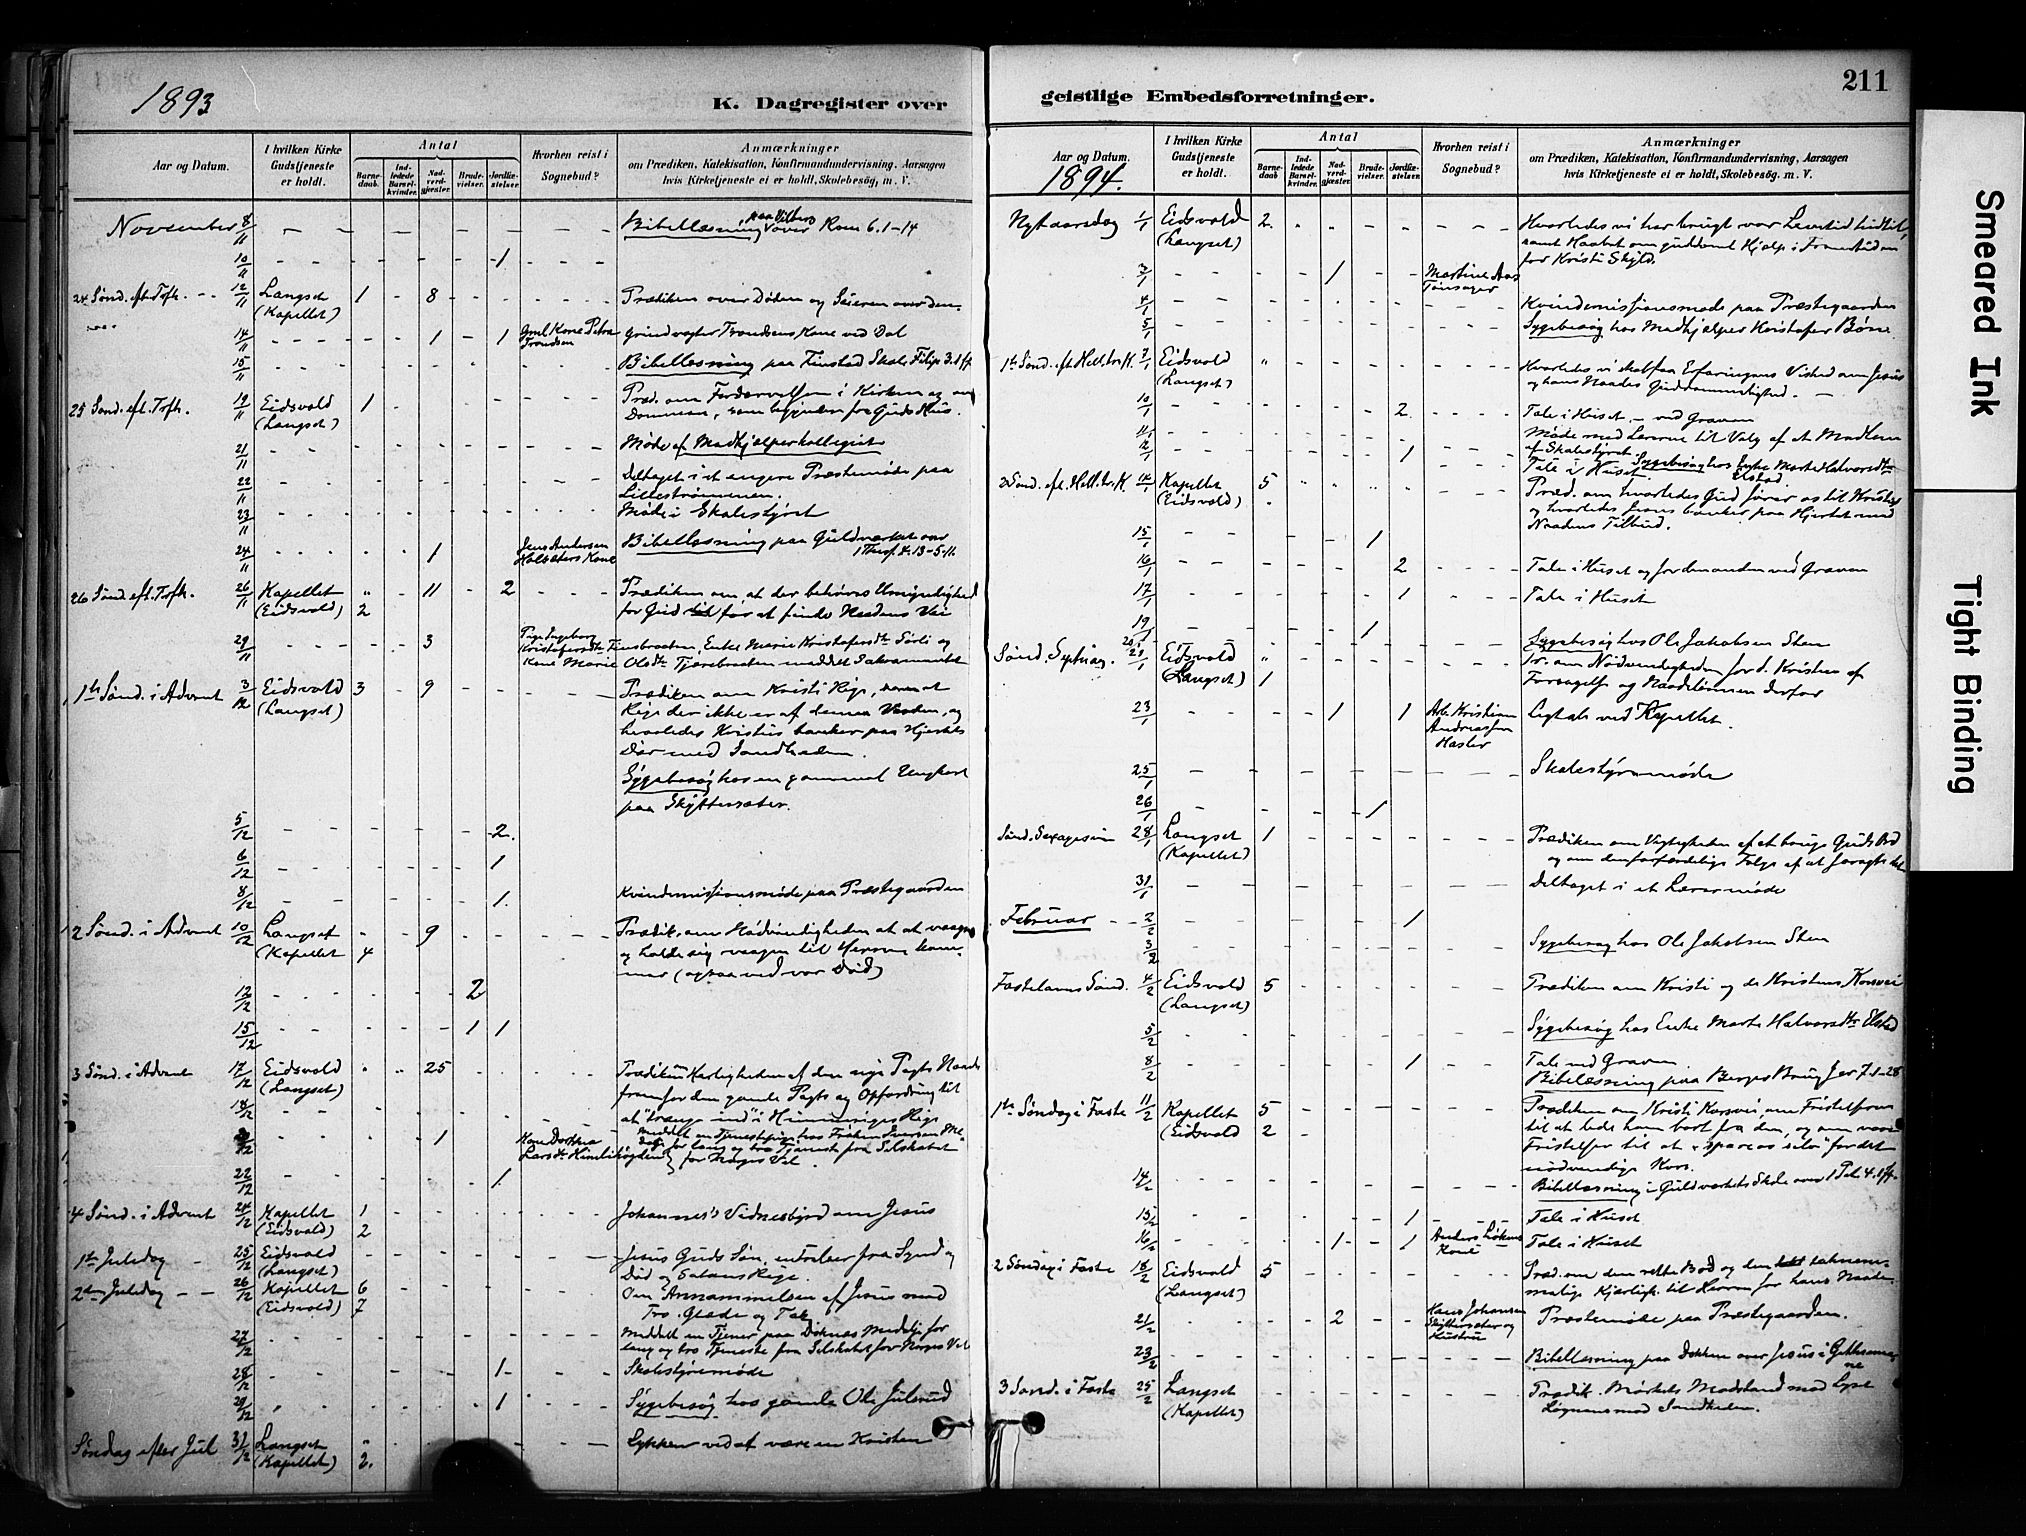 1893
K. Dagregister over
Aar og Datum.
I hvilken Kirke Gudstjeneste er holdt.
Antal
Barne-daab.
Ind-ledede Barsel-kvinder.
Nad-verd-gjester.
Brude-vielser.
Jordfæ-stelser.
Hvorhen reist i Sognebud?
Anmærkninger
om Prædiken, Katekisation, Konfirmandundervisning, Aarsagen
hvis Kirketjeneste ei er holdt, Skolebesøg, m. V.
November 8/11 Bibellæsning over Rom 6.1-14
10/11 1
24 Sønd. eft. Trfh. 12/11 Langset (Kapellet) 1 8 Prædiken over Døden og Seieren over den
14/11 1 1 Kone Petra Trondsen Grindvogter Trondsens Kone ved Dal
15/11 Bibellæsning paa Finstad Skole Filip. 3.1 ff
25 Sønd. eft. Trfh. 19/11 Eidsvold (Langset) 1 Præd. om Fordærvelsen i Kirken og om
Dommen, som begynder fra Guds Hus.
21/11 Møde af Medhjælperkollegiet
22/11 Deltaget i et engere Præstemøde paa
Lillestrømmen.
23/11 Møde i Skolestyret
24/11 1 Jens Andersen Holsæters Kone Bibellæsning paa Guldværket over
1 Thess. 4.13-5.11
26 Sønd. eft. Trfh. 26/11 Kapellet 11 2 Prædiken om at der behøves Umyndighed
(Eidsvold) 2 for Gud for at finde Naadens Vei
29/11 3 Pige Ingeborg Kristofersdtr Finsbraaten, Enke Marie Kristofersdtr Sørli og
Kone Marie Olsdtr Tjærebraaten meddelt Sakramentet
1ste Sønd. i Advent 3/12 Eidsvold (Langset) 3 9 Prædiken om Kristi Rige, som et
Rige der ikke er af denne Verden, og
hvorledes Kristus banker paa Hjertets
Dør med Sandheden.
Sygebesøg hos en gammel Ungkarl
paa Skyttersæter.
5/12 2.
6/12 1
8/12 1. Kvindemissionsmøde paa Præstegaarden
2 Sønd. i Advent 10/12 Langset 9 Prædik. om Nødvendigheden at at vaagne
(Kapellet 4 og holde sig vaagen til Herren kom-
mer (ogsaa ved vor Død)
12/12 2
15/12 1 1
3 Sønd. i Advent 17/12 Eidsvold (Langset) 25 Prædiken Herligheden af den nye Pagts Naade
fremfor den gamle Pagts og Opfordring til
18/12 at "trænge ind" i Himmeriges Rige
1 Kone Dorthea Larsdtr meddelt en Tjenestepige hos Frøken Iversen Me-
dalje for lang og tro Tjeneste fra Selskabet
for Norges Vel.
22/12 1.
4 Sønd. i Advent 24/12 Kapellet 1 Johannes's Vidnesbyrd om Jesus
(Eidsvold) 2
1ste Juledag 25/12 Eidsvold (Langset) Jesus Guds Søn, en Frelser fra Synd og
Død og Satans Rige.
2den Juledag 26/12 Kapellet 6 Om Annammelsen af Jesus med
(Eidsvold) 7 Tro, Glæde og Tak
27/12 Meddelt en Tjener paa Doknæs Medalje for
lang og tro Tjeneste fra Selskabet for Norges Vel
28/12 1 Skolestyremøde
29/12 1 Sygebesøg hos gamle Ole Julsrud
Søndag efter Jul 31/12 Langset (Kapellet) 2. Lykken ved at være en Kristen
geistlige Embedsforretninger.
211
Aar og Datum.
1894.
I hvilken Kirke Gudstjeneste er holdt.
Antal
Barne-daab.
Ind-ledede Barsel-kvinder.
Nad-verd-gjester.
Brude-vielser.
Jordfæ-stelser.
Hvorhen reist i Sognebud?
Anmærkninger
om Prædiken, Katekisation, Konfirmandundervisning, Aarsagen
hvis Kirketjeneste ei er holdt, Skolebesøg, m. V.
Nytaarsdag 1/1 Eidsvold (Langset) 2. Hvorledes vi har brugt vor Levetid hidtil,
samt Haabet om guddoml. Hjælp i Fremtiden
for Kristi Skyld.
3/1 1 Martine Aas
4/1 Kvindemissionsmøde paa Præstegaarden
5/1 Sygebesøg hos Medhjælper Kristofer Bøne
1ste Sønd. eft. Hell. tre K. 7/1 Eidsvold (Langset) Hvorledes vi skal faa Erfaringens Vished om Jesus
og hans Naades Guddommelighed.
10/1 2 Tale i Huset – ved Graven
11/1 Møde med Lærerne til Valg af et Medlem
af Skolestyret
12/1 1 Tale i Huset. Sygebesøg hos Enke Marte Halvorsdtr
Elstad.
2 Sønd. eft. Hell. tre K. 14/1 Kapellet (Eidsvold) 5 Præd. om hvorledes Gud fører os til Kristus
og hvorledes Jesus banker paa Hjertet med
Naadens Tilbud.
15/1 1
16/1 2 Tale i Huset og for den anden ved Graven
17/1 1 Tale i Huset
19/1 1
Sygebesøg hos Ole Jakobsen Sten
Sønd. Septuag. 21/1 Eidsvold Pr. om Nødvendigheden for d. Kristne af
(Langset) 1 Forsagelse og Naadelønnen derfor
23/1 1 1 Arb. Kristian Andreassen Hasler Ligtale ved Kapellet.
25/1 Skolestyremøde
26/1 1
Sønd. Sexagesim 28/1 Langset (Kapellet) 1 Prædiken om Vigtigheden af at bruge Guds Ord
og om den forfærdelige Følge af at foragte det
31/1 Deltaget i et Lærermøde
Februar 2/2 1
3/2 Sygebesøg hos Ole Jakobsen Sten
Fastelavns Sønd. 4/2 Eidsvold (Langset) 5 Prædiken om Kristi og de Kristnes Korsvei
5/2 Sygebesøg hos Enke Marte Halvorsdtr Elstad
8/2 1 Tale ved Graven
Bibellæsning paa Berges Brug Jer 7.1-28
1ste Søndag i Faste 11/2 Kapellet 5 Prædiken om Kristi Korsvei, om Fristelserne
(Eidsvold 2 til at lede ham bort fra den, og om vore
Fristelser til at "spare os selv" for det
nødvendige Kors.
14/2 Bibellæsning i Guldværkets Skole over 1 Pet. 4.1 ff.
15/2 1 Tale i Huset
16/2 1 1 Anders Løkens Kone Tale i Huset
2 Søndag i Faste 18/2 Eidsvold (Langset) 5 Præd. om den rette Bod og den taknem-
melige Kjærligh. til Herren for hans Naade.
21/2 2 Hans Johansen Skyttersæter og Hustru Præstemøde paa Præstegaarden.
23/2 Bibellæsning paa Dokken over Jesus i Gethsema-
ne
3 Sønd. i Faste 25/2 Langset (Kapellet) Prædik. Mørkets Modstand mod Lyset
Løgnens mod Sandheden.
Smeared Ink
Tight Binding